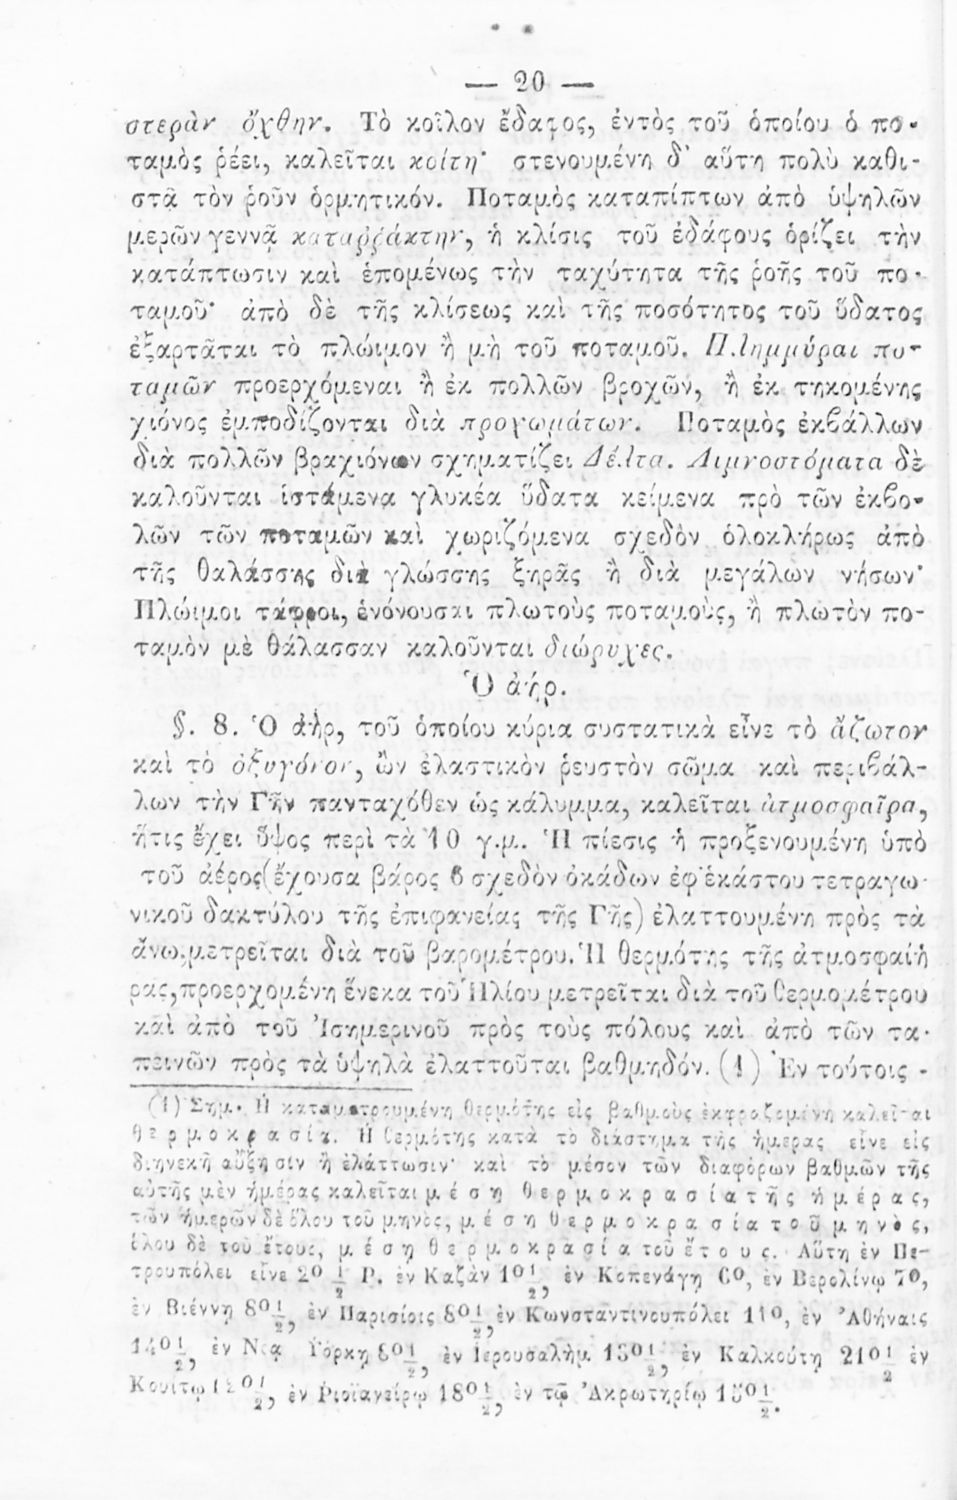 — 20 —
στερὰν ὄχθην. Τὸ κοῖλον ἔδαφος, ἐντὸς τοῦ ὁποίου ὁ πο-
ταμὸς ῥέει, καλεῖται κοίτη· στενουμένη δ' αὕτη πολὺ καθι-
στᾷ τὸν ῥοῦν ὁρμητικόν. Ποταμὸς καταπίπτων ἀπὸ ὑψηλῶν
μερῶν γεννᾷ καταῤῥάκτην, ἡ κλίσις τοῦ ἐδάφους ὁρίζει τὴν
κατάπτωσιν καὶ ἑπομένως τὴν ταχύτητα τῆς ῥοῆς τοῦ πο-
ταμοῦ· ἀπὸ δὲ τῆς κλίσεως καὶ τῆς ποσότητος τοῦ ὕδατος
ἐξαρτᾶται τὸ πλώιμον ἢ μὴ τοῦ ποταμοῦ. Πλημμύραι πο-
ταμῶν προερχόμεναι ἢ ἐκ πολλῶν βροχῶν, ἢ ἐκ τηκομένης
χιόνος ἐμποδίζονται διὰ προχωμάτων. Ποταμὸς ἐκβάλλων
διὰ πολλῶν βραχιόνων σχηματίζει Δέλτα. Λιμνοστόματα δὲ
καλοῦνται ἱστάμενα γλυκέα ὕδατα κείμενα πρὸ τῶν ἐκβο-
λῶν τῶν ποταμῶν καὶ χωριζόμενα σχεδὸν ὁλοκλήρως ἀπὸ
τῆς θαλάσσης διὰ γλώσσης ξηρᾶς ἢ διὰ μεγάλων νήσων·
Πλώιμοι τάφροι, ἑνόνουσαι πλωτοὺς ποταμοὺς, ἢ πλωτὸν πο-
ταμὸν μὲ θάλασσαν καλοῦνται διώρυχες.
Ὁ ἀήρ.
§. 8. Ὁ ἀὴρ, τοῦ ὁποίου κύρια συστατικὰ εἶνε τὸ ἄζωτον
καὶ τὸ ὀξυγόνον, ὢν ἐλαστικὸν ῥευστὸν σῶμα καὶ περιβάλ-
λων τὴν Γῆν πανταχόθεν ὡς κάλυμμα, καλεῖται ἀτμοσφαῖρα,
ἥτις ἔχει ὕψος περὶ τὰ 10 γ.μ. Ἡ πίεσις ἡ προξενουμένη ὑπὸ
τοῦ ἀέρος (ἔχουσα βάρος 6 σχεδὸν ὀκάδων ἐφ' ἑκάστου τετραγω-
νικοῦ δακτύλου τῆς ἐπιφανείας τῆς Γῆς) ἐλαττουμένη πρὸς τὰ
ἄνω, μετρεῖται διὰ τοῦ βαρομέτρου. Ἡ θερμότης τῆς ἀτμοσφαίη
ρας, προερχομένη ἕνεκα τοῦ Ἡλίου μετρεῖται διὰ τοῦ θερμομέτρου
καὶ ἀπὸ τοῦ Ἰσημερινοῦ πρὸς τοὺς πόλους καὶ ἀπὸ τῶν τα-
πεινῶν πρὸς τὰ ὑψηλὰ ἐλαττοῦται βαθμηδόν. (1) Ἐν τούτοις -
(1) Σημ. Ἡ καταμετρουμένη θερμότης εἰς βαθμοὺς ἐκφραζομένη καλεῖται
θερμοκρασία. Ἡ θερμότης κατὰ τὸ διάστημα τῆς ἡμερας εἶνε εἰς
διηνεκῆ αὔξησιν ἢ ἐλάττωσιν· καὶ τὸ μέσον τῶν διαφόρων βαθμῶν τῆς
αὐτῆς μὲν ἡμέρας καλεῖται μέση θερμοκρασία τῆς ἡμέρας,
τῶν ἡμερῶν δὲ ὅλου τοῦ μηνὸς, μέση θερμοκρασία τοῦ μηνὸς,
ὅλου δὲ τοῦ ἔτους, μέση θερμοκρασία τοῦ ἔτους. Αὕτη ἐν Πε-
τρουπόλει εἶνε 2⁰ ½ Ρ. ἐν Καζὰν 1⁰ ½, ἐν Κοπενάγῃ 6⁰, ἐν Βερολίνῳ 7⁰,
ἐν Βιέννῃ 8⁰ ½, ἐν Παρισίοις 8⁰ ½, ἐν Κωνσταντινουπόλει 11⁰, ἐν Ἀθήναις
⁰ ½, ἐν Νέᾳ Ὑόρκῃ 8⁰ ½, ἐν Ἱερουσαλὴμ ⁰ ½, ἐν Καλκούτῃ 21⁰ ½ ἐν
Κουίτῳ ⁰ ½, ἐν Ῥιοϊανείρῳ 18⁰ ½, ἐν τῷ Ἀκρωτηρίῳ ⁰ ½.